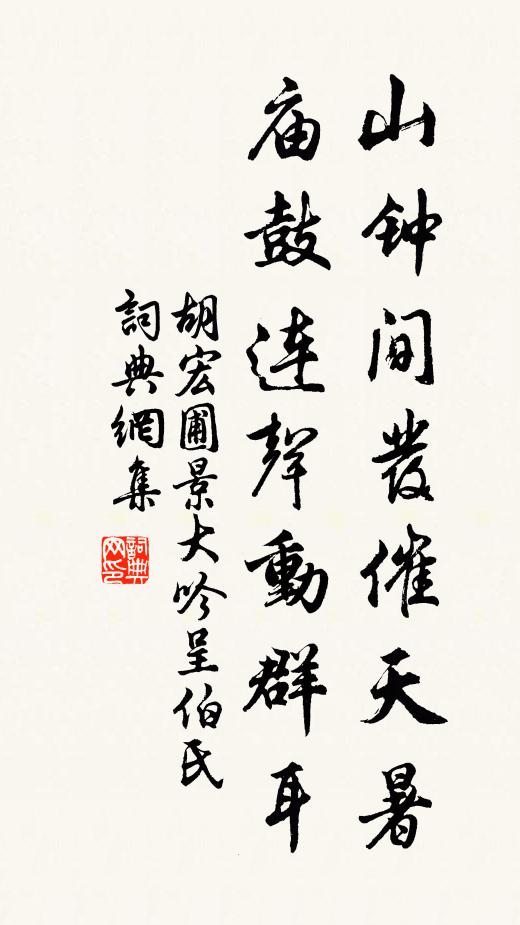 山钟间發催天暑
庙鼓連聲動群耳
胡宏圃景大吟呈伯氏
詞典網集
詞典网印